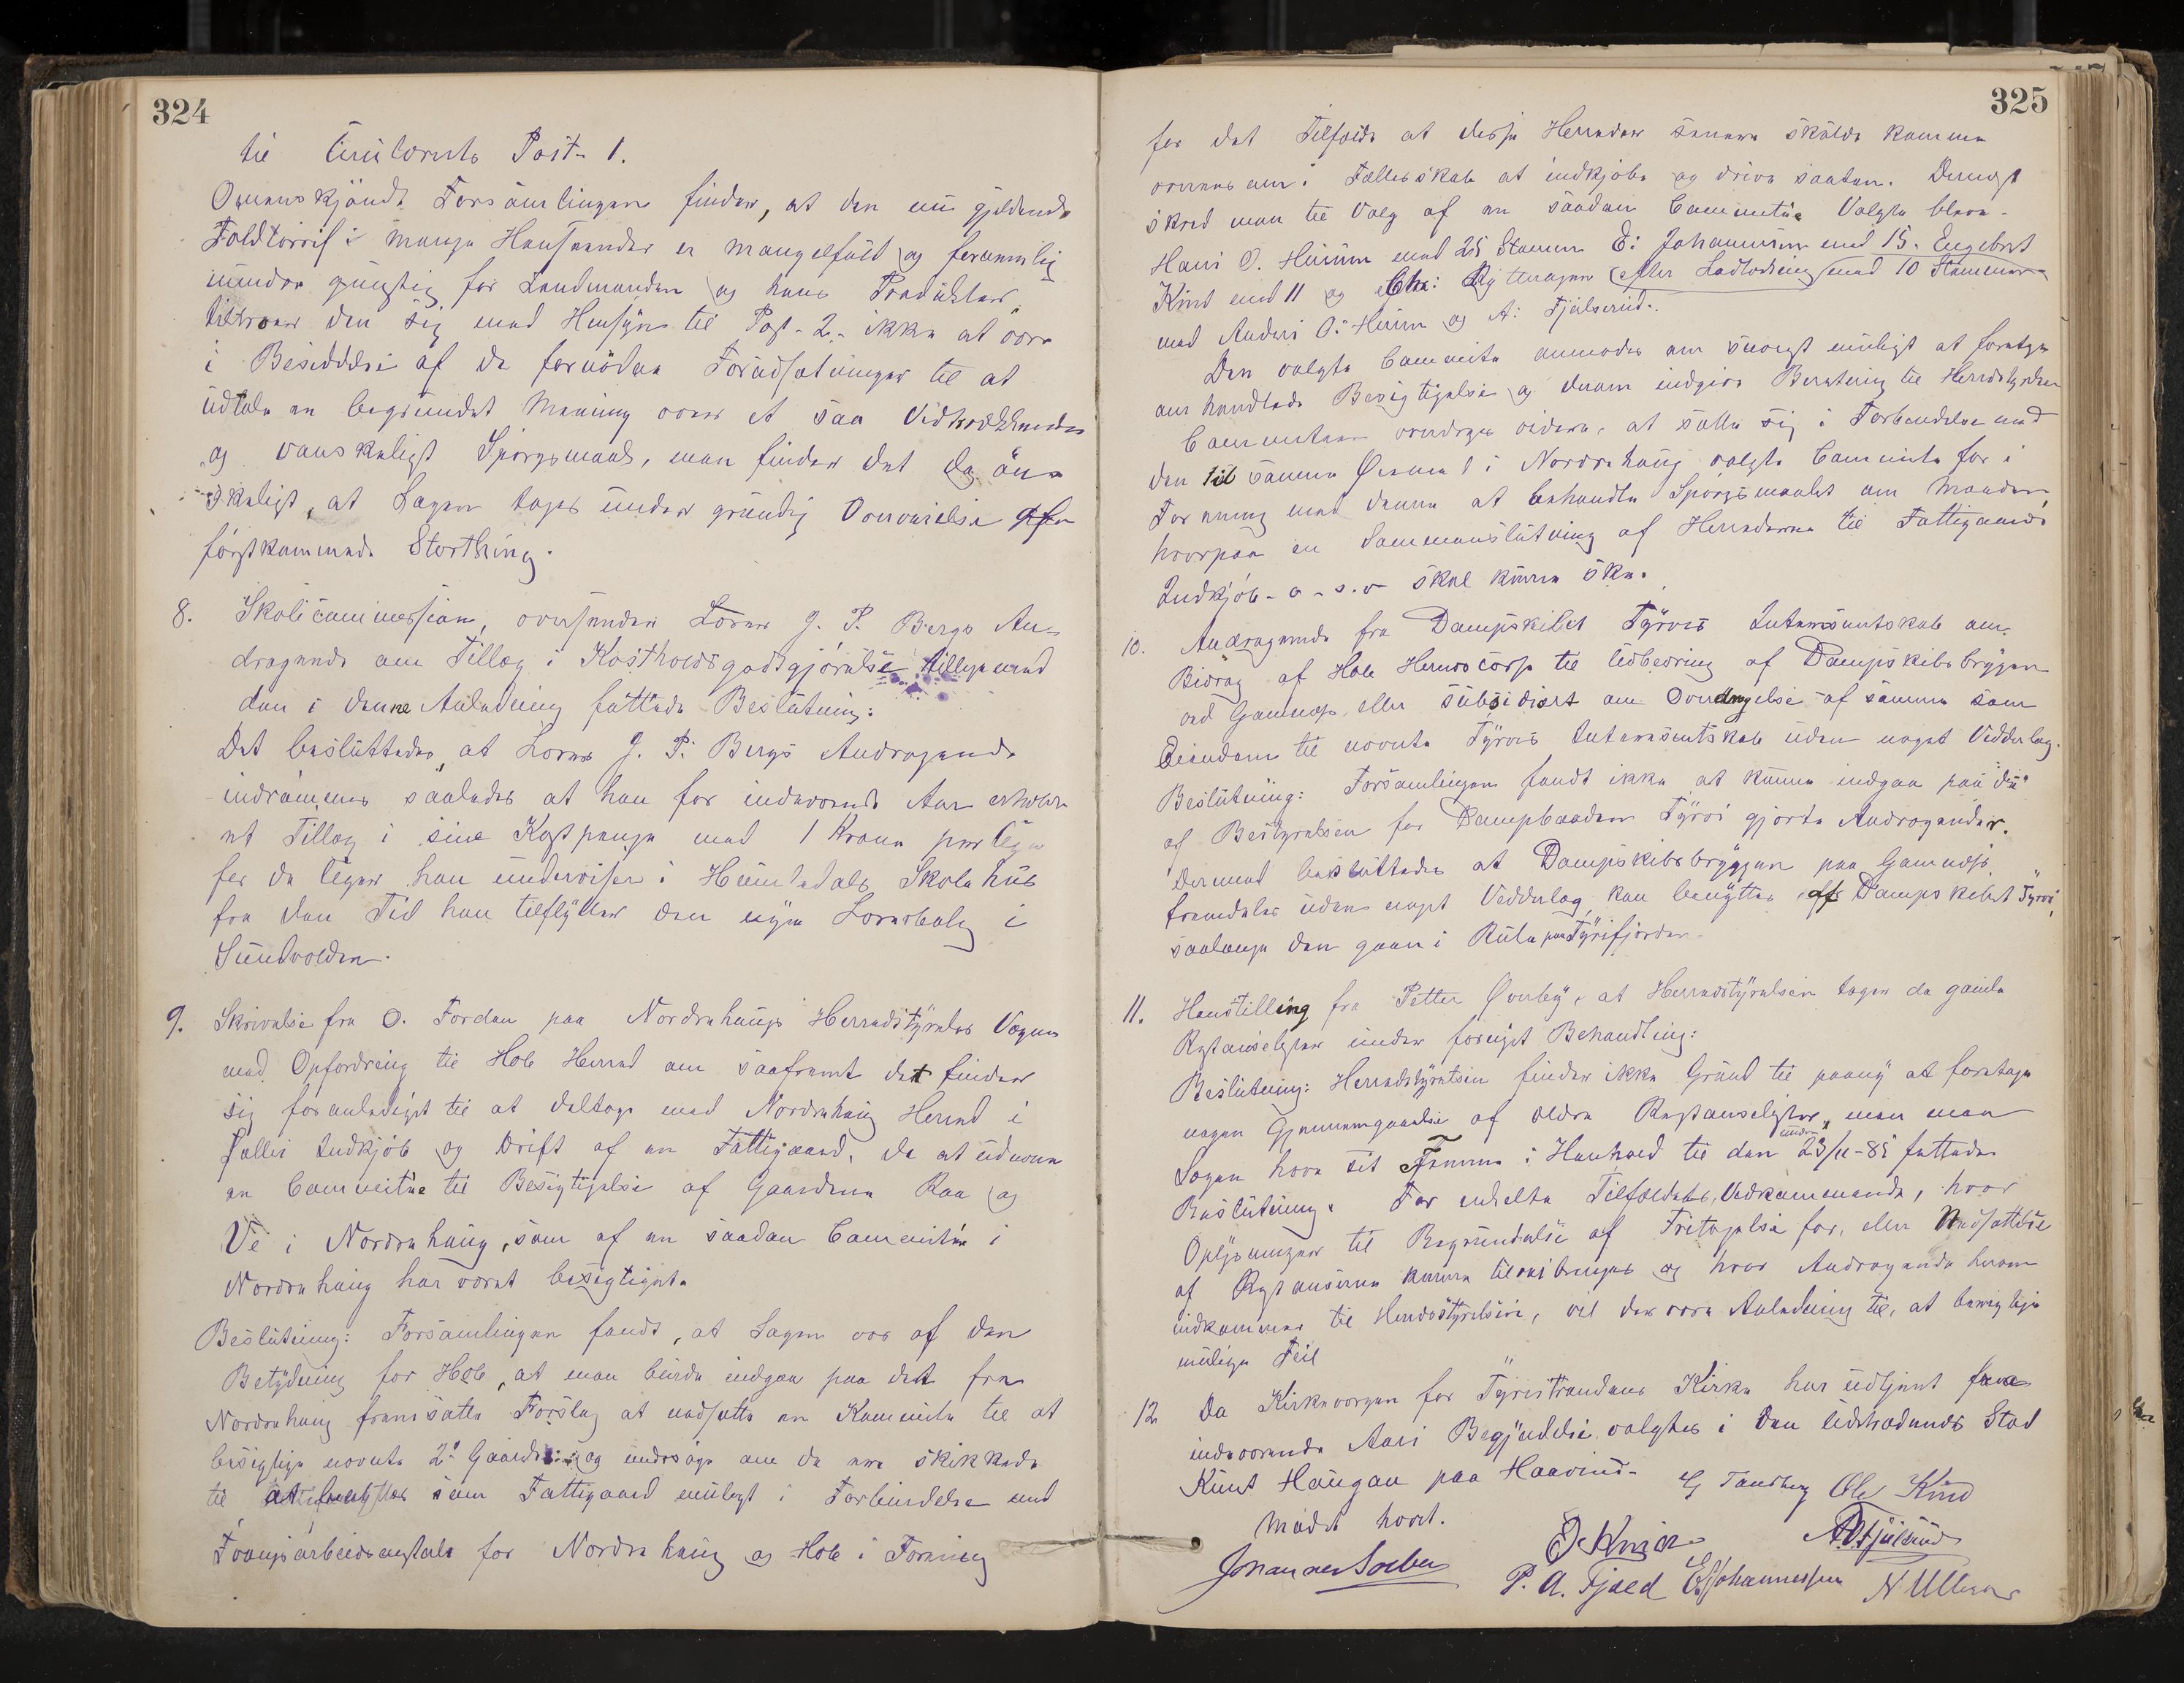 324
til Cirkulærets Post 1.
Omendskjöndt Forsamlingen finder, at den nu gjeldende
Toldtarrif i mange Henseender er mangelfuld og fornemmelig
mindre gunstig for Landmanden og hans Produkter
tiltroer den sig med Hensyn til Post 2 ikke at være
i Besiddelse af de fornödne Forudsetninger til at
udtale en begrundet Mening over et saa Vidtrækkende
og vanskeligt Spörgsmaal, man finder det dog ön-
skeligt, at Sagen tages under grundig Overveielse af
förstkommende Storthing.
8. Skolecommissionen oversender Lærer J. P. Bergs An-
dragende om Tillæg i Kostholdsgodtgjörelse tilligemed
den i denne Anledning fattede Beslutning:
Det besluttedes, at Lærer J. P. Bergs Andragende
indrömmes saaledes at han for indeværende Aar erholder
et Tillæg i sine Kostpenge med 1 Krone per Uge
for de Uger han underviser i Homledals Skolehus
fra den Tid han tilflytter den nye Lærerbolig i
Sundvolden.
9. Skrivelse fra O. Fordan paa Norderhaugs Herredstyrelses Vegne
med Opfordring til Hole Herred om saafremt det finder
sig foranlediget til at deltage med Norderhaug Herred i
Fælles Indkjöb og Drift af en Fattiggaard, da at udnevne
en Committee til Besigtigelse af Gaardene Raa og
Ve i Norderhaug, som af en saadan Committee i
Norderhaug har været besigtiget.
Beslutning: Forsamlingen fandt, at Sagen var af den
Betydning for Hole, at man burde indgaa paa det fra
Norderhaug fremsatte Forslag at nedsette en Kommite til at
besigtige nevnte 2de Gaarde og undersöge om de ere skikkede
til at benyttes som Fattiggaard muligt i Forbindelse med
Tvangsarbeidsanstalt for Norderhaug og Hole i Forening
325
for det Tilfælde at disse Herreder senere skulde komme
overens om i Fællesskab at indkjöbe og drive saadan. Dernest
skred man til Valg af en saadan Committee Valgte bleve
Hans O. Hurum med 25 Stemmer E: Johannesen med 15. Engebret
Kind med 11 og Chr: Rytteragen efter Lodtrækning med 10 Stemmer
med Anders O: Hurum og A: Fjelserud.
Den valgte Committe anmodes om snarest muligt at foretage
omhandlede Besigtigelse og derom indgive Beretning til Herredstyrelsen
Committeen overdrages videre, at sætte sig i Forbindelse med
den til samme Öiemed i Norderhaug valgte Committe for i
Forening med denne at behandle Spörgsmaalet om Maaden
hvorpaa en Sammenslutning af Herrederne til Fattiggaards
Indkjöb o. s. v skal kunne ske.
10. Andragende fra Dampskibet Tyrves Interessentskab om
Bidrag af Hole Herredscasse til Udbedring af Dampskibsbryggen
ved Gamnæs eller subsidiært om Overdragelse af samme som
Eiendom til nevnte Tyrves Interessentskab uden noget Vederlag.
Beslutning: Forsamlingen fandt ikke at kunne indgaa paa de
af Bestyrelsen for Dampbaaden Tyrvi gjorte Andragender.
Dermed besluttedes at Dampskibsbryggen paa Gamnæs
fremdeles uden noget Vederlag kan benyttes af Dampskibet Tyrvi,
saalenge den gaar i Rute paa Tyrifjorden.
11. Henstilling fra Petter Överby, at Herredstyrelsen tager de gamle
Restanselister under fornyet Behandling:
Beslutning: Herredstyrelsen finder ikke Grund til paany at foretage
nogen Gjennemgaaelse af eldre Restanselister, men man
Sagen have sit Forme i Henhold til den under 23/11-85 fattede
Beslutning. For enkelte Tilfeldes Vedkommende, hvor
Oplysninger til Begrundelse af Fritagelse for, eller Nedsættelse
af Restanserne kunne tilveiebringes og hvor Andragende herom
indkommer til Herredstyrelsen, vil der være Anledning til, at berigtige
mulige Feil
12 Da Kirkevergen for Tyristrandens Kirke har udtjent fra
indeværende Aars Begyndelse valgtes i den Udtrædendes Sted
Knut Haugan paa Haavind.
Mödet hævet.
G Tandberg Ole Kind
O Knia A. O. Fjælsrud
Johannes Solberg
P. A. Fjeld E. Johannessen N. Ullern